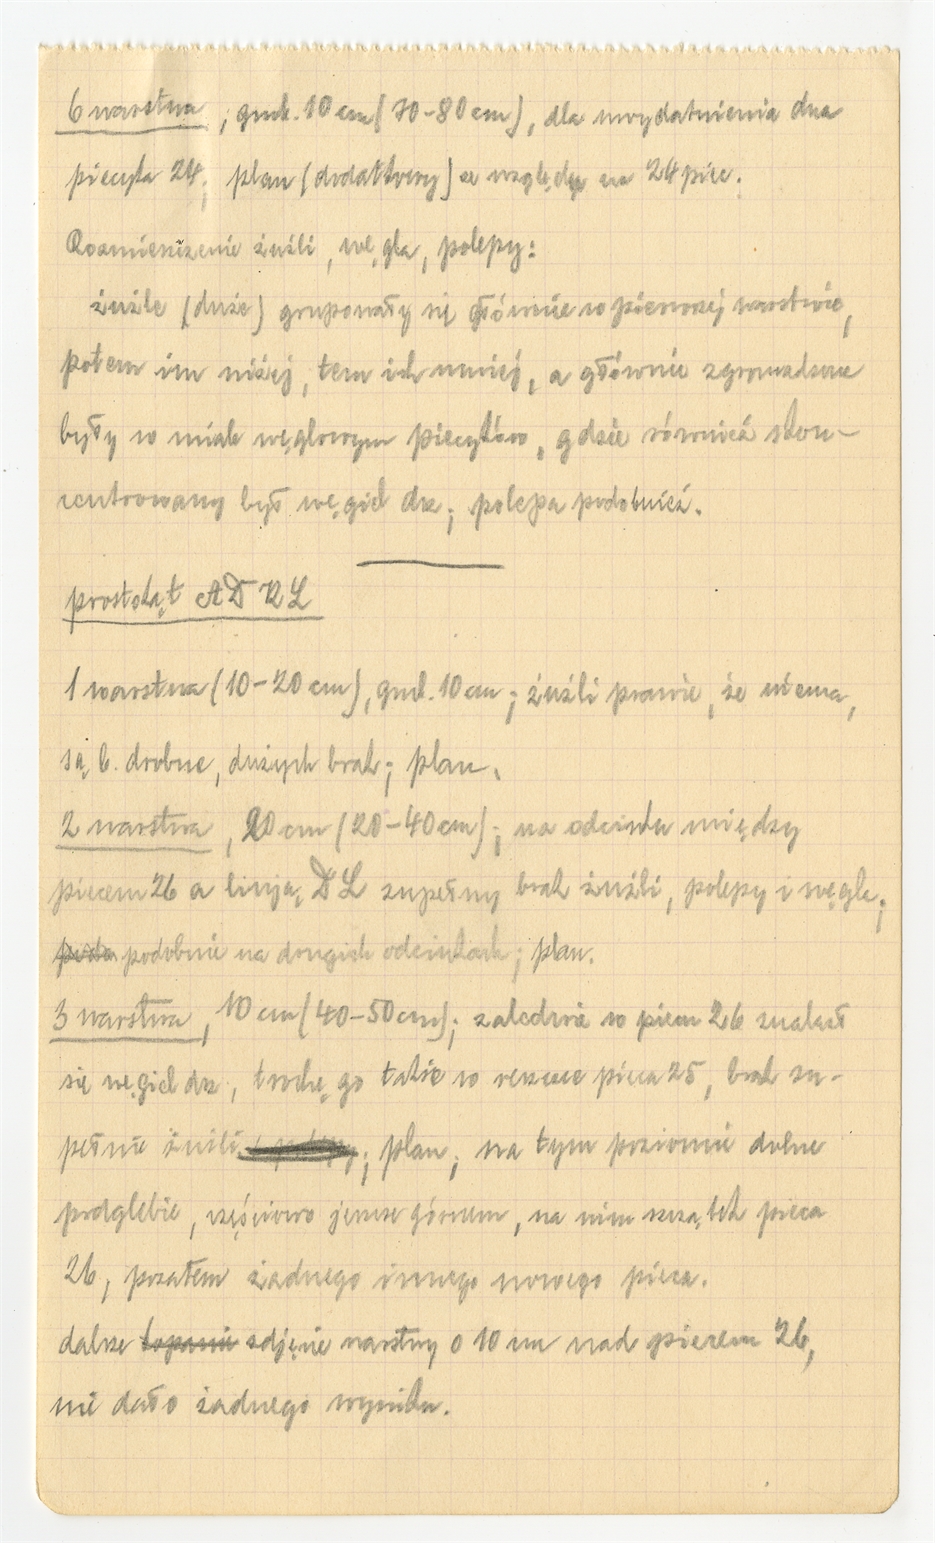 6 warstwa, grub. 10 cm (70-80 cm), dla uwydatnienia dna
piecyka 24; plan (dodatkowy) ze względu na 24 piec.
Rozmieszczenie żużli, węgla, polepy:
żużle (duże) grupowały się głównie w pierwszej warstwie,
potem im niżej, tem ich mniej, a głównie zgromadzone
były w miale węglowym piecyków, gdzie również skon-
centrowany był węgiel drz; polepa podobnież.
prostokąt ADKL
1 warstwa (10-20 cm), grub. 10 cm; żużli prawie, że niema,
są b. drobne, dużych brak; plan.
2 warstwa, 20 cm (20-40 cm); na odcinku między
piecem 26 a linją DL zupełny brak żużli, polepy i węgla;
podobnie na drugich odcinkach; plan.
3 warstwa, 10 cm (40-50 cm); zaledwie w piecu 26 znalazł
się węgiel drz, trochę go także w reszcie pieca 25, brak zu-
pełnie żużli; plan; na tym poziomie dolne
podglebie, częściowo jeszcze górnem, na nim szczątek pieca
26, pozatem żadnego innego nowego pieca.
dalsze kopanie zdjęcie warstwy o 10 cm nad piecem 26,
nie dało żadnego wyniku.